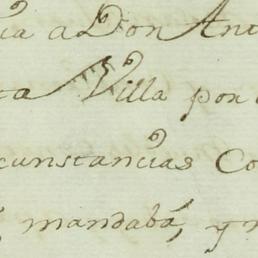 a Don Ant
ta Villa por
cunstancias Co
mandaba, y